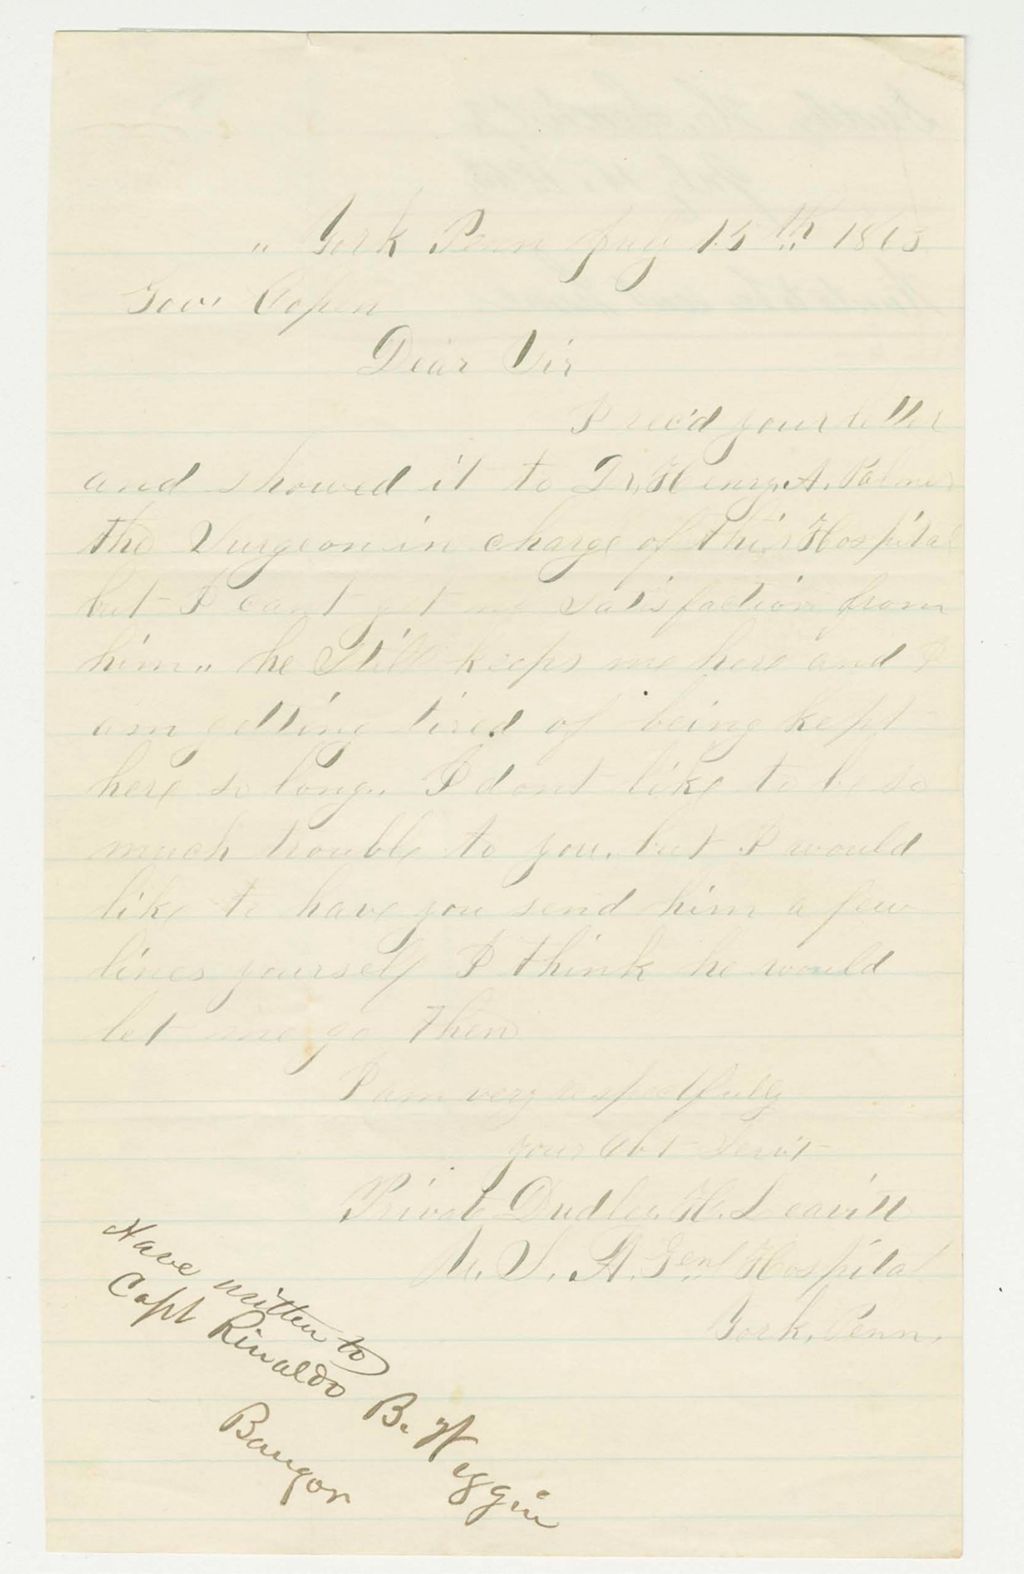 " York Penn July 15th 1863
Gov. Copen
Dear Sir
I rec'd your letter
and showed it to Dr. Henry. A. Palmer
the Surgeon in charge of this Hospital
but I cant get no satisfaction from
him " he still keeps me here and I
am getting tired of being kept
here so long. I dont like to be so
much trouble to you. but I would
like to have you send him a few
lines yourself I think he would
let me go then
I am very respectfully
your Obt Servt
Private Dudley. H. Leavitt
U. S. A. Genl Hospital
York, Penn.
Have written to
Capt Rinaldo B. Wiggin
Bangor